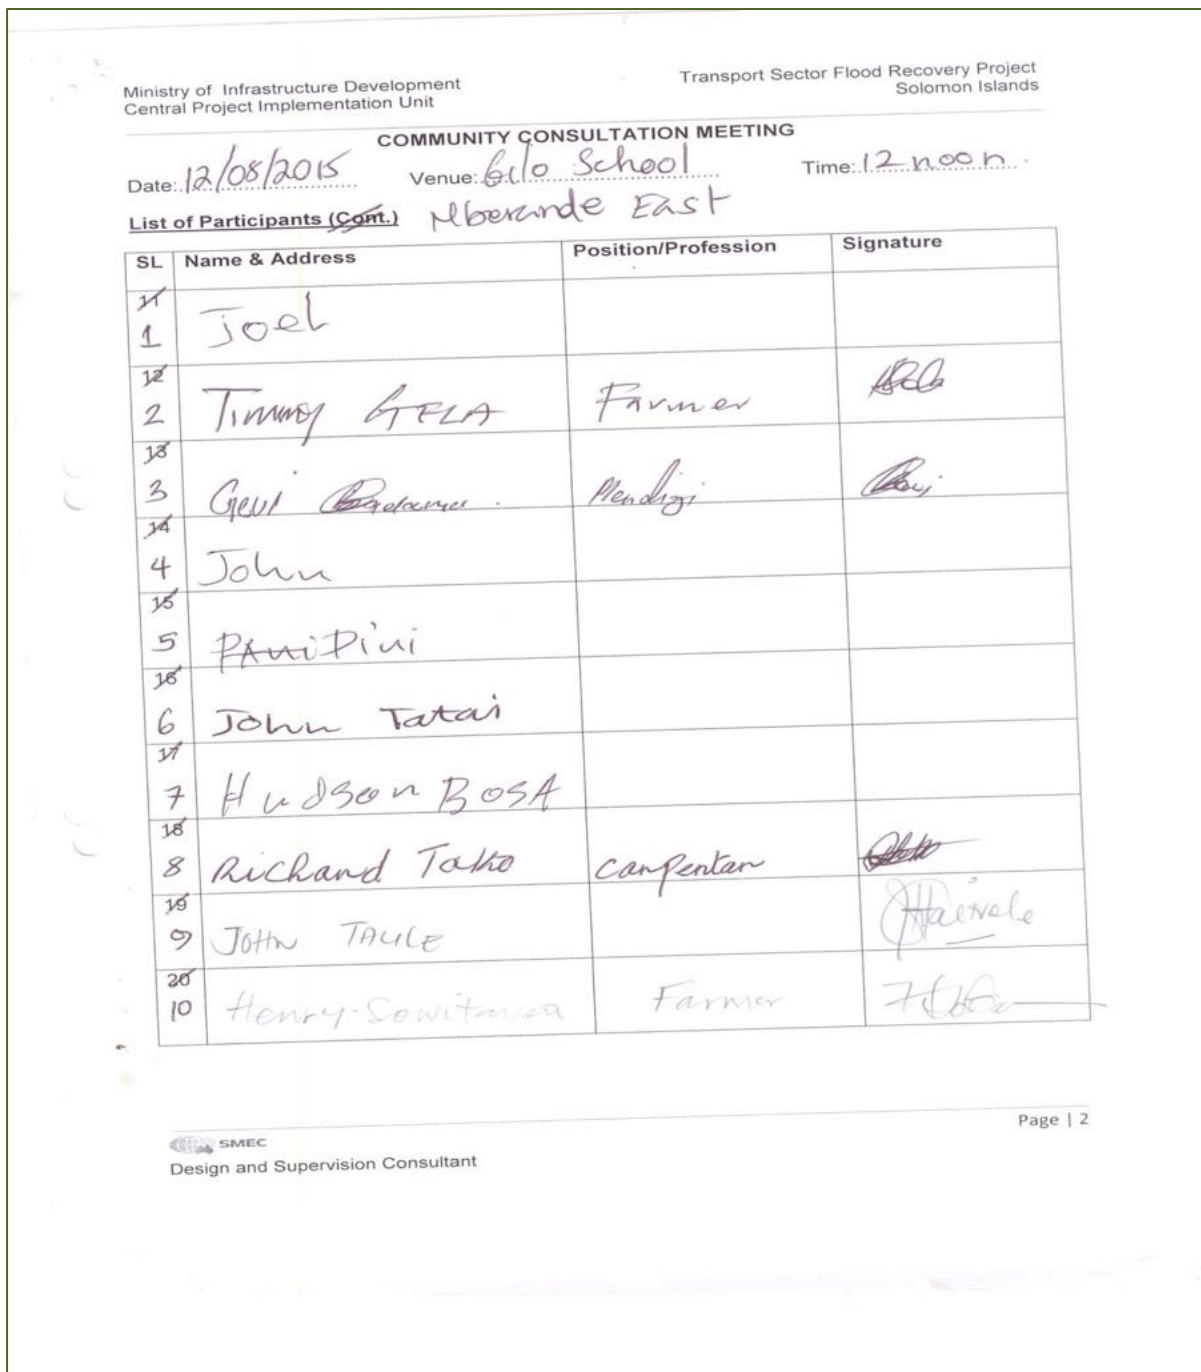 Ministry of Infrastructure Development
Central Project Implementation Unit
Transport Sector Flood Recovery Project
Solomon Islands
COMMUNITY CONSULTATION MEETING
Date: 12/08/2015 Venue: School Time: 12 noon
List of Participants (Cont.) East
SL Name & Address Position/Profession Signature
11
1 Joel
12
2 Timmy GELA Farmer
13
3 Geui
14
4 John
15
5 Pini
16
6 John Tatai
17
7 Hudson BOSA
18
8 Richand Tatko Canpentan
19
9 JOHN TAULE
20
10 Henry Farmer
Page | 2
SMEC
Design and Supervision Consultant